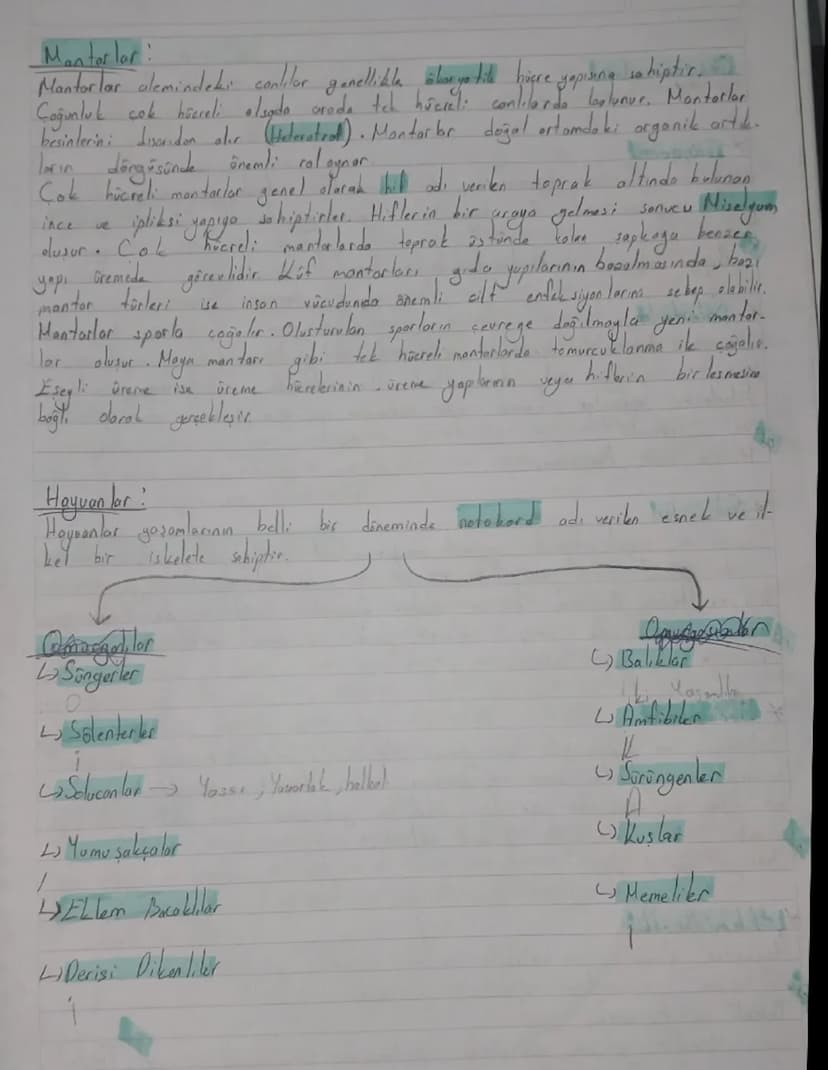 Mantarlar :
Mantarlar alemindeki canlılar genellikle ökaryotik hücre yapısına sahiptir.
Çoğunluk çok hücreli olsada arada tek hücreli canlılarda bulunur. Mantarlar
besinlerini dışarıdan alır (Heterotrof). Mantarlar doğal ortamdaki organik artık-
ların döngüsünde önemli rol oynar.
Çok hücreli mantarlar genel olarak hif adı verilen toprak altında bulunan
ince ve ipliksi yapıya sahiptirler. Hiflerin bir araya gelmesi sonucu Miselyum
oluşur. Çok hücreli mantarlarda toprak üstünde kalan şapkaya benzer
yapı üremede görevlidir. Küf mantarları gıda yapılarının bozulmasında, bazı
mantar türleri ise insan vücudunda önemli cilt enfeksiyonlarına sebep olabilir.
Mantarlar sporla çoğalır. Oluşturulan sporların çevreye dağılmayla yeni mantar-
lar oluşur. Maya mantarı gibi tek hücreli mantarlarda tomurcuklanma ile çoğalır.
Eşeyli üreme ise üreme hücrelerinin, üreme yapılarının veya hiflerin birleşmesine
bağlı olarak gerçekleşir.
Hayvanlar :
Hayvanlar yaşamlarının belli bir döneminde notokord adı verilen esnek ve il-
kel bir iskelete sahiptir.
↳ Süngerler
↳ Sölenterler
↳ Solucanlar → Yassı, Yuvarlak, halkalı
↳ Yumuşakçalar
↳ Eklem Bacaklılar
↳ Derisi Dikenliler
↳ Balıklar
İki Yaşamlı
↳ Amfibiler
↳ Sürüngenler
↳ Kuşlar
↳ Memeliler